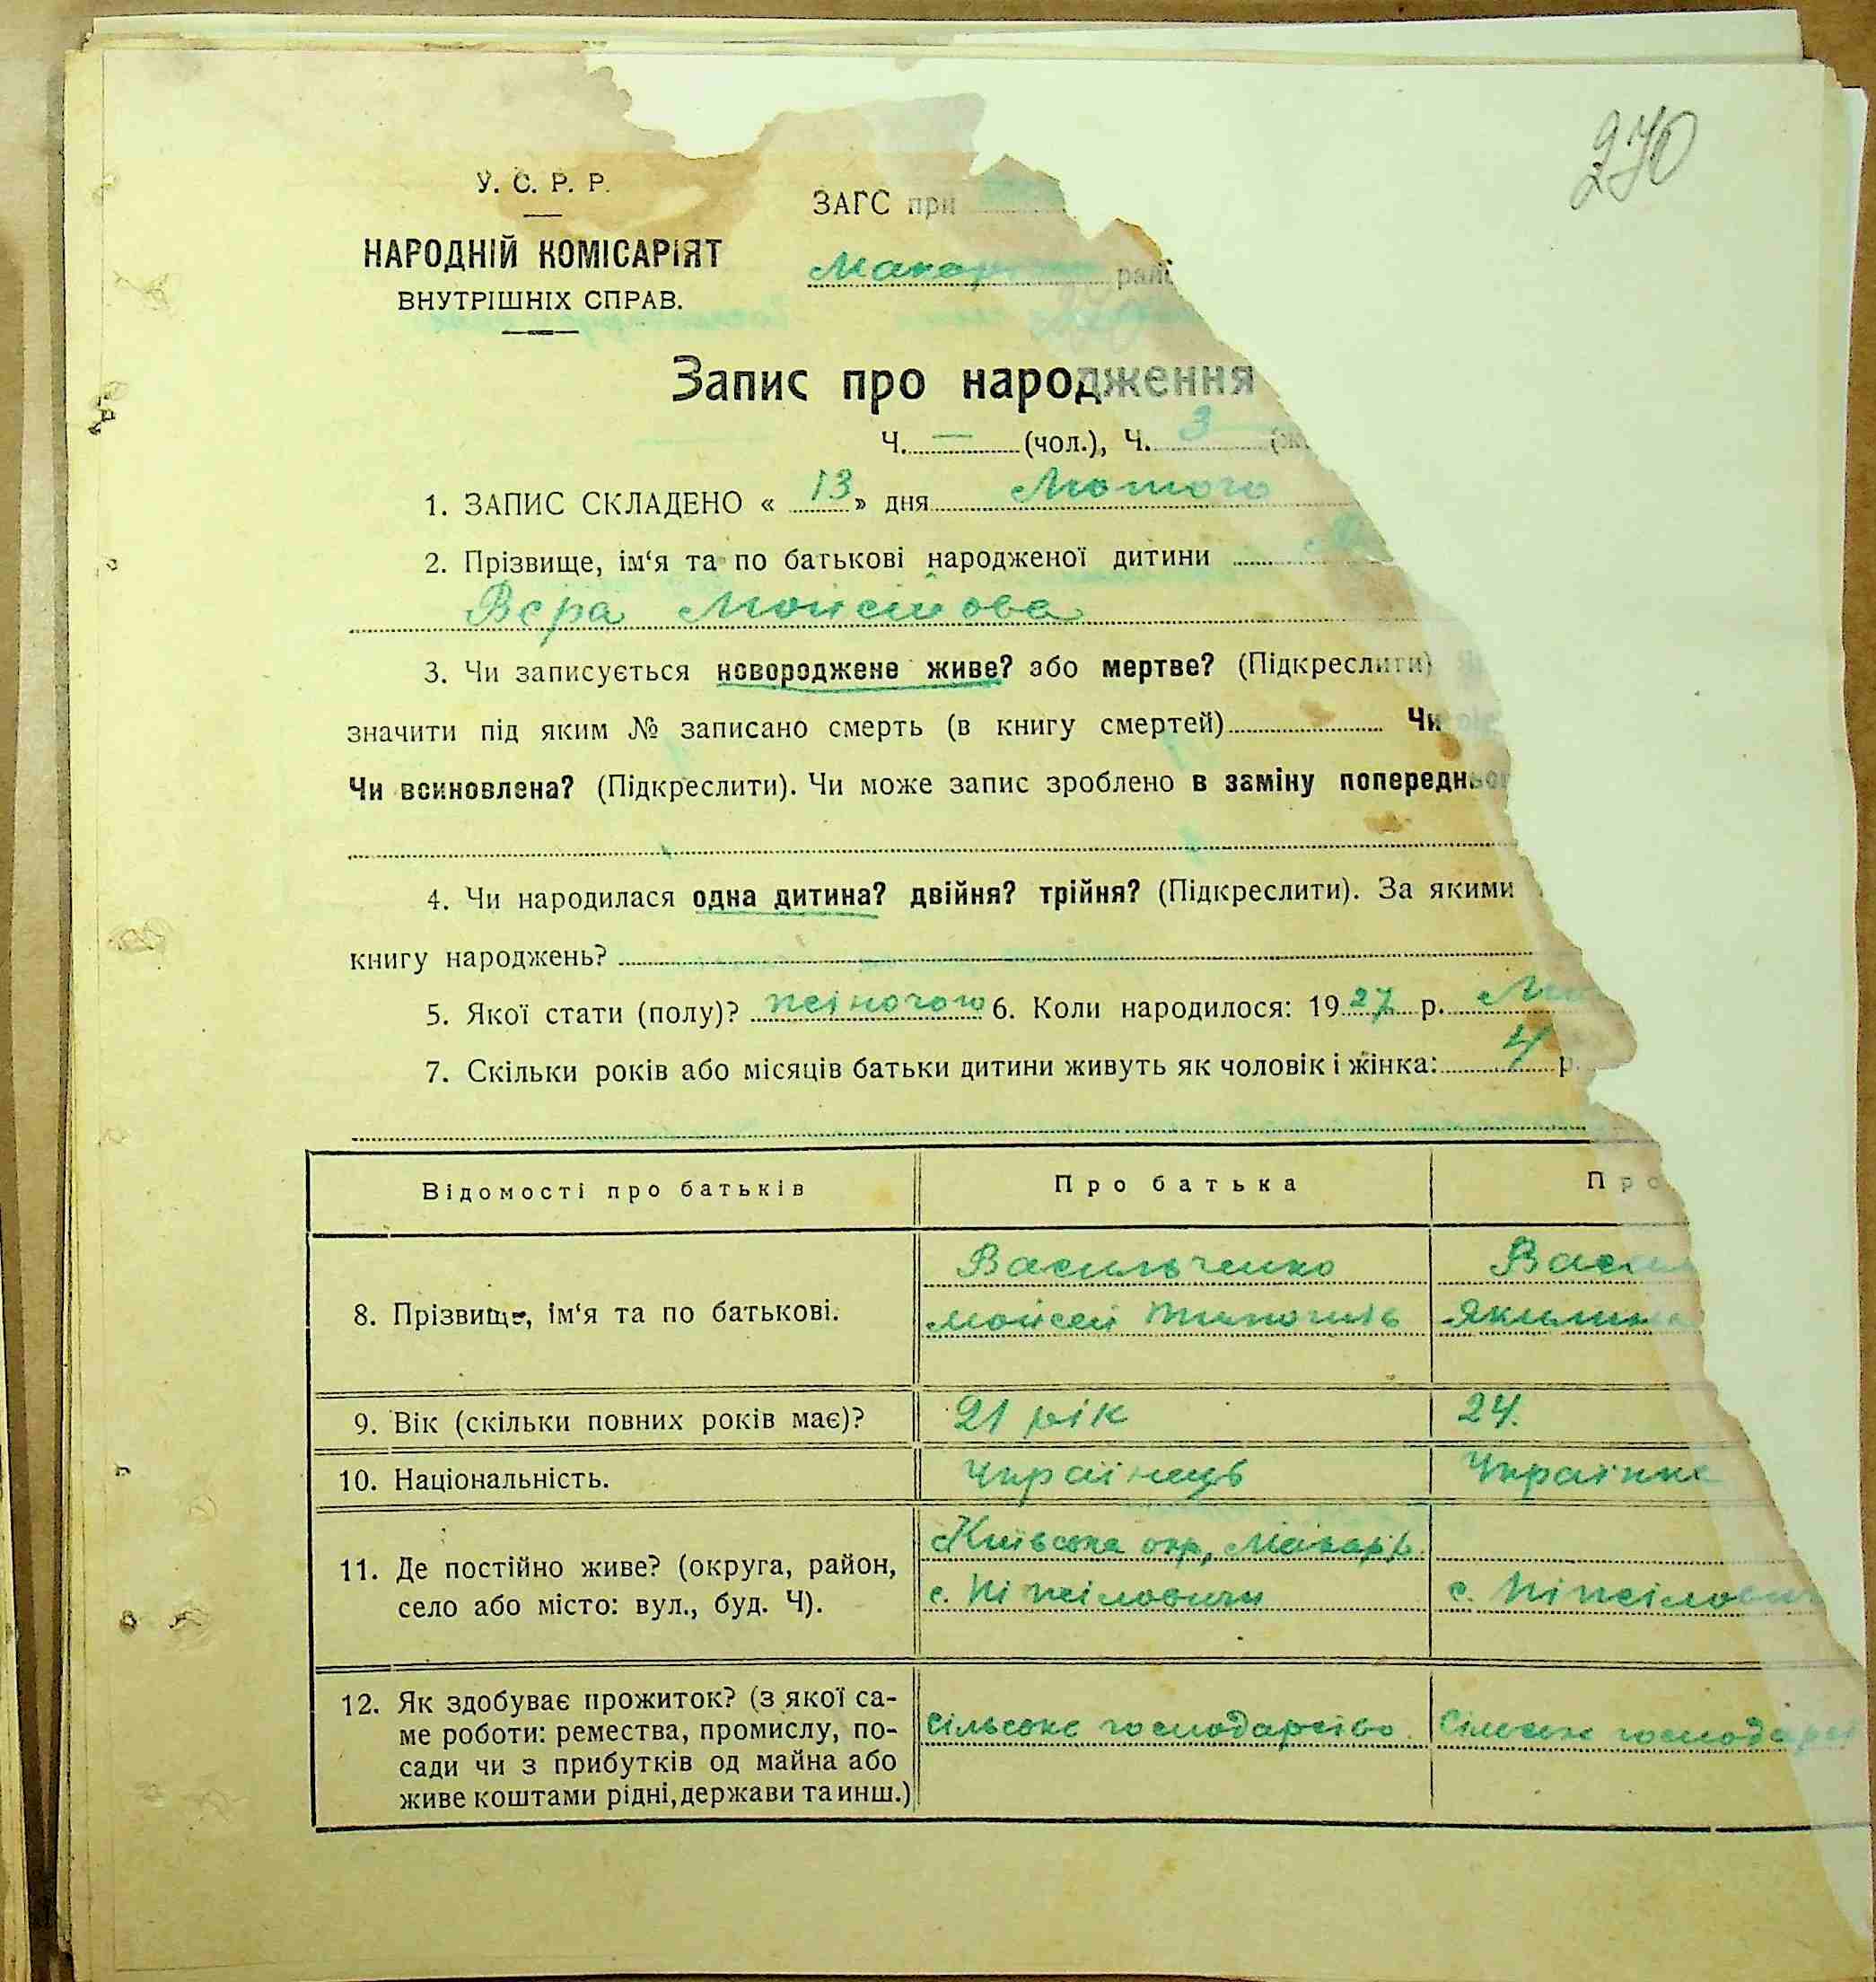 270
У. С. Р. Р.
ЗАГС при
НАРОДНІЙ КОМІСАРІЯТ
ВНУТРІШНІХ СПРАВ.
Запис про народження
Ч. — (чол.), Ч. 3
1. ЗАПИС СКЛАДЕНО « 13 » дня Лютого
2. Прізвище, ім‘я та по батькові народженої дитини
Вєра Мойсейова
3. Чи записується новороджене живе? або мертве? (Підкреслити)
значити під яким № записано смерть (в книгу смертей) Чи
Чи всиновлена? (Підкреслити). Чи може запис зроблено в заміну попереднього
4. Чи народилася одна дитина? двійня? трійня? (Підкреслити). За якими
книгу народжень?
5. Якої стати (полу)? жіночого 6. Коли народилося: 1927 р.
7. Скільки років або місяців батьки дитини живуть як чоловік і жінка: 4 р.
Відомості про батьків Про батька
8. Прізвище, ім‘я та по батькові.
Васильченко
Мойсей
9. Вік (скільки повних років має)? 21 рік 24.
10. Національність. Українець Українка
11. Де постійно живе? (округа, район,
село або місто: вул., буд. Ч).
Київська окр, Макар р.
с. Ніжиловичи
с. Ніжилович
12. Як здобуває прожиток? (з якої са-
ме роботи: ремества, промислу, по-
сади чи з прибутків од майна або
живе коштами рідні, держави та инш.)
Сільське господарство. Сільске господарст